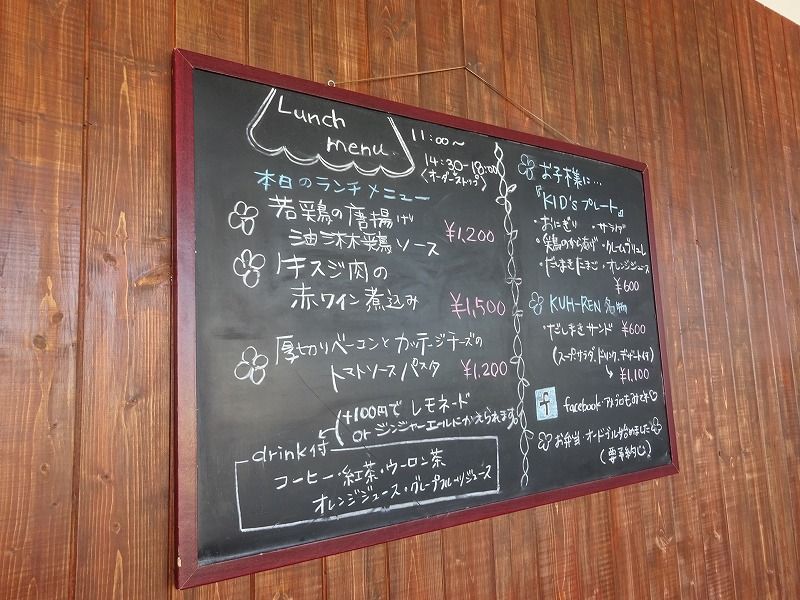 Lunch
menu.
11:00～
14:30-18:00
〈オーダーストップ〉
本日のランチメニュー
若鶏の唐揚げ
油淋鶏ソース ¥1,200
牛スジ肉の
赤ワイン煮込み ¥1,500
厚切りベーコンとカッテージチーズの
トマトソースパスタ ¥1,200
(+100円でレモネード
orジンジャーエールにかえられます。
drink付
コーヒー・紅茶・ウーロン茶
オレンジジュース・グレープフルーツジュース
お子様に…
『KID'sプレート』
・おにぎり ・サラダ
・鶏のから揚げ・クレームブリュレ
・だしまきたまご・オレンジジュース
¥600
KUH-REN 名物
・だしまきサンド ¥600
(スープ・サラダ・ドリンク・デザート付)
↳ ¥1,100
f facebook・アメブロもみてネ♡
お弁当・オードブル始めました
(要予約)